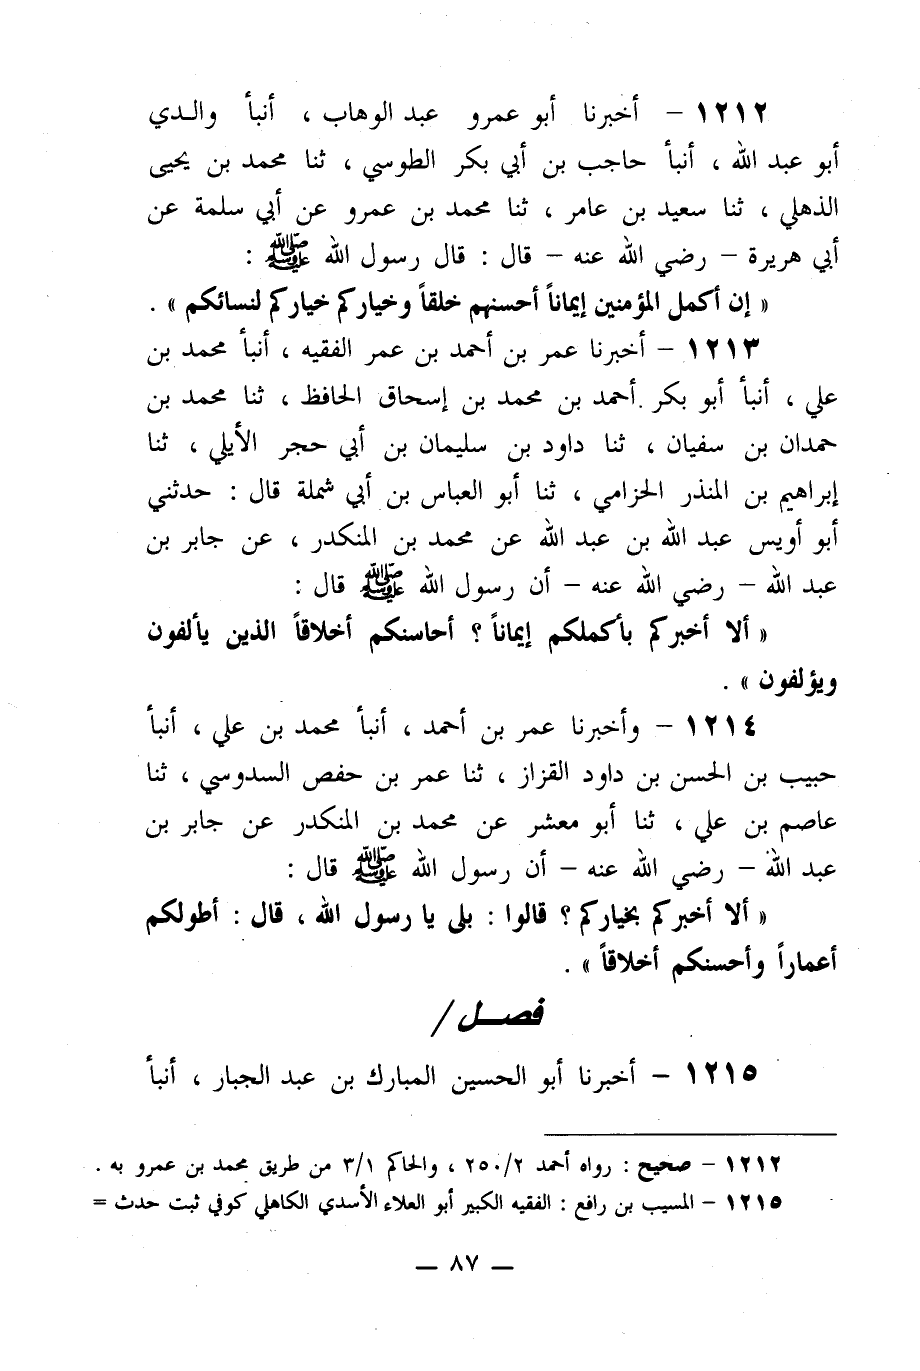 ١٢١٢ – أخبرنا أبو عمرو عبد الوهاب ، أنبأ والـدي
أبو عبد الله ، أنبأ حاجب بن أبي بكر الطوسي ، ثنا محمد بن يحيى
الذهلي ، ثنا سعيد بن عامر ، ثنا محمد بن عمرو عن أبي سلمة عن
أبي هريرة – رضي الله عنه – قال : قال رسول الله ﷺ :
« إن أكمل المؤمنين إيماناً أحسنهم خلقاً وخياركم خياركم لنسائكم » .
١٢١٣ – أخبرنا عمر بن أحمد بن عمر الفقيه ، أنبأ محمد بن
علي ، أنبأ أبو بكر أحمد بن محمد بن إسحاق الحافظ ، ثنا محمد بن
حمدان بن سفيان ، ثنا داود بن سليمان بن أبي حجر الأيلي ، ثنا
إبراهيم بن المنذر الحزامي ، ثنا أبو العباس بن أبي شملة قال : حدثني
أبو أويس عبد الله بن عبد الله عن محمد بن المنكدر ، عن جابر بن
عبد الله – رضي الله عنه – أن رسول الله ﷺ قال :
« ألا أخبركم بأكملكم إيماناً ؟ أحاسنكم أخلاقاً الذين يألفون
ويؤلفون » .
١٢١٤ – وأخبرنا عمر بن أحمد ، أنبأ محمد بن علي ، أنبأ
حبيب بن الحسن بن داود القزاز ، ثنا عمر بن حفص السدوسي ، ثنا
عاصم بن علي ، ثنا أبو معشر عن محمد بن المنكدر عن جابر بن
عبد الله – رضي الله عنه – أن رسول الله ﷺ قال :
« ألا أخبركم بخياركم ؟ قالوا : بلى يا رسول الله ، قال : أطولكم
أعماراً وأحسنكم أخلاقاً » .
فصــل /
١٢١٥ – أخبرنا أبو الحسين المبارك بن عبد الجبار ، أنبأ
١٢١٢ – صحيح : رواه أحمد ٢٥٠/٢ ، والحاكم ٣/١ من طريق محمد بن عمرو به .
١٢١٥ – المسيب بن رافع : الفقيه الكبير أبو العلاء الأسدي الكاهلي كوفي ثبت حدث =
— ٨٧ —